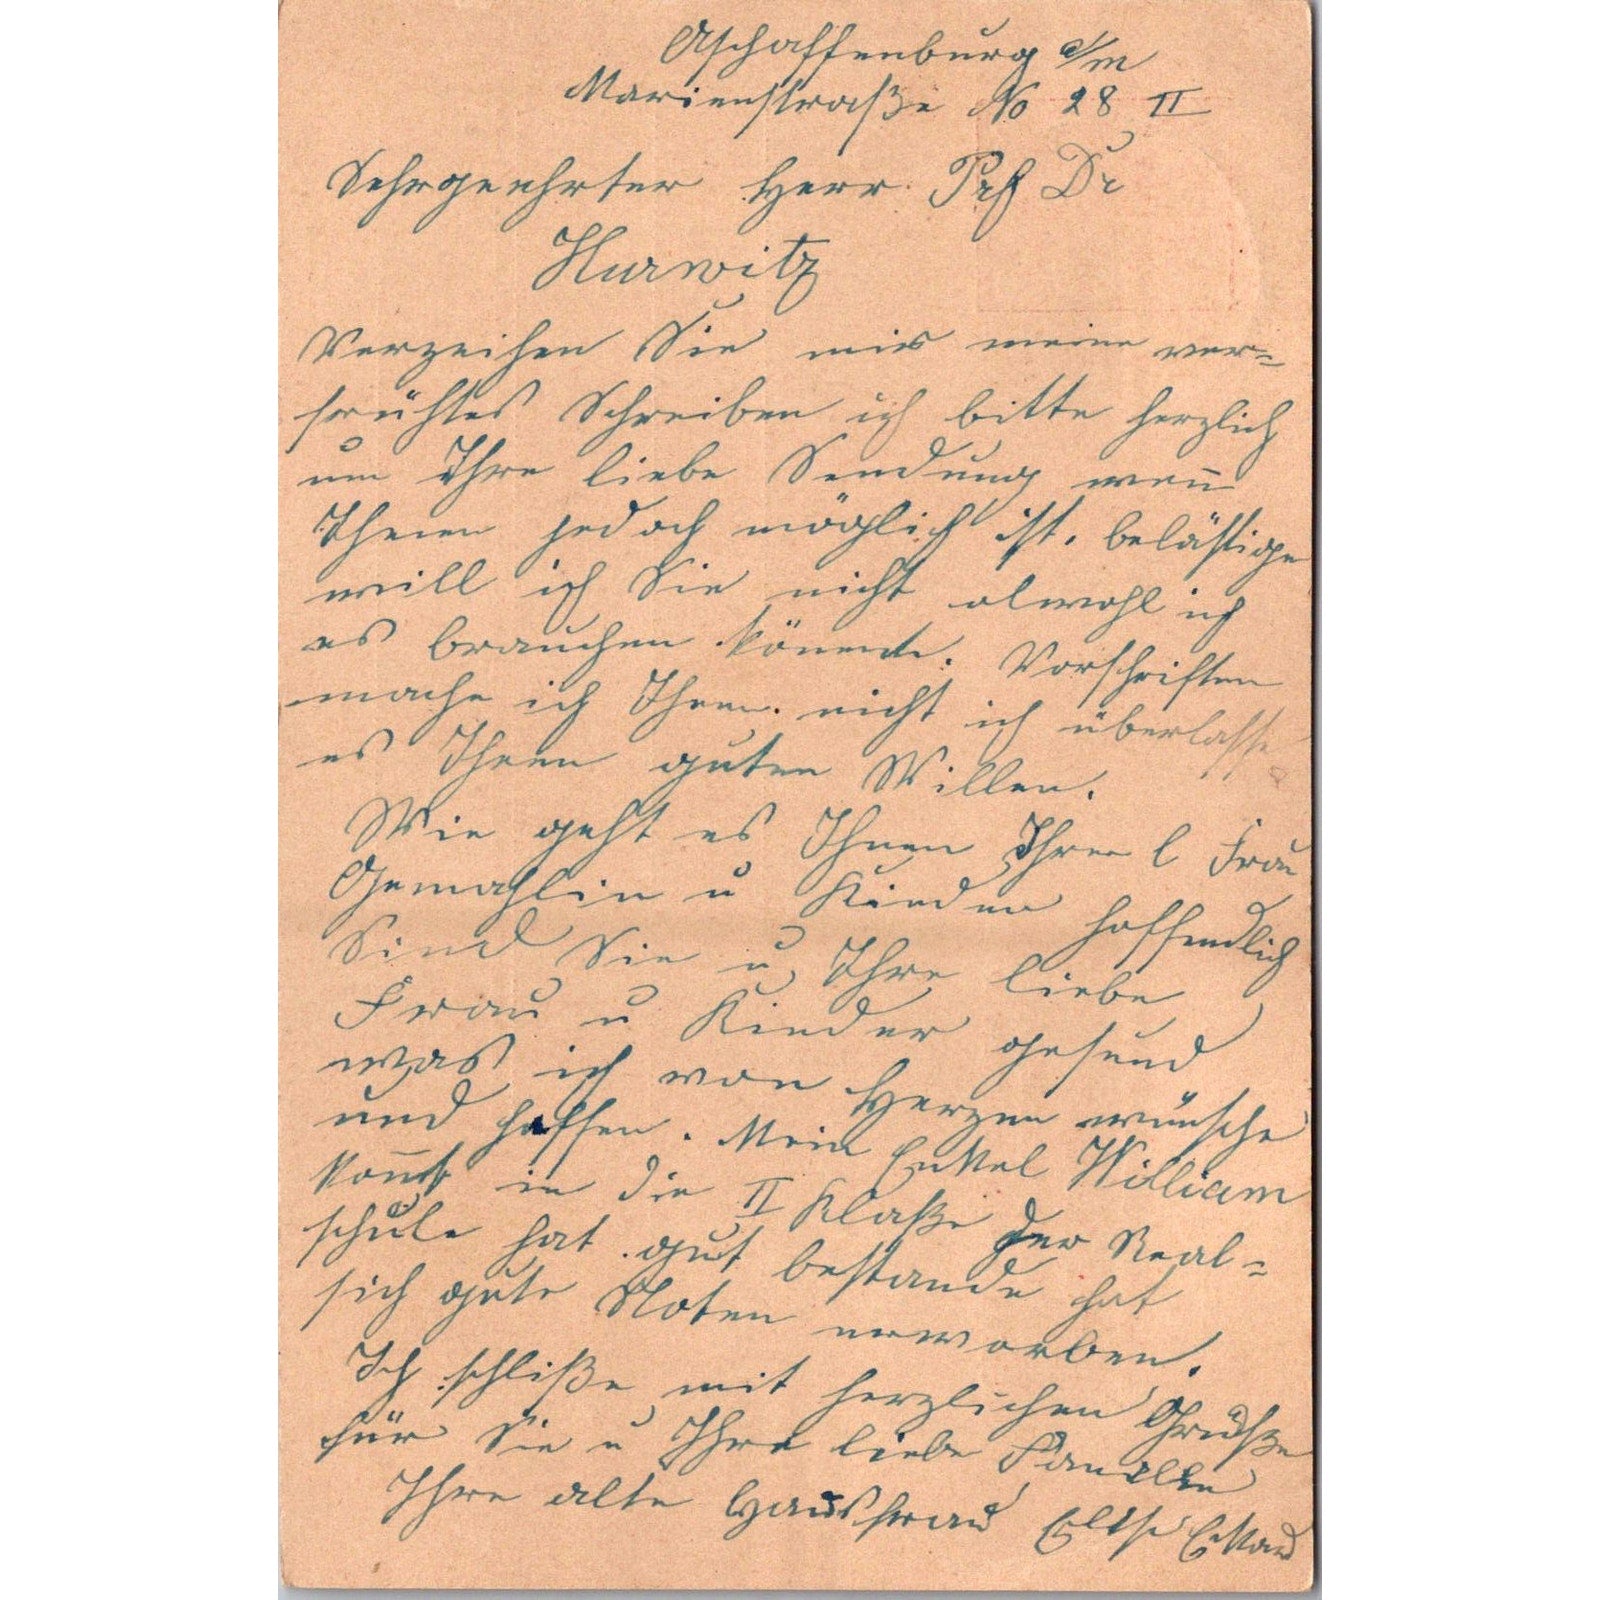 Aschaffenburg a/m
Marienstraße No 28 II
Sehrgeehrter Herr Prf Dr
Hurwitz
Verzeihen Sie mir meine ver=
frühtes Schreiben ich bitte herzlich
um Ihre liebe Sendung wen̅
Ihnen jedoch möglich ist. belästige
will ich Sie nicht obwohl ich
es brauchen könnte. Vorschriften
mache ich Ihnen nicht ich überlasse
es Ihren guten Willen.
Wie geht es Ihnen Ihrer l Frau
Gemahlin u Kinder hoffendlich
Sind Sie u Ihre liebe
Frau u Kinder gesund
was ich von Herzen wünsche
und hoffen. Mein Enkel William
kom̅t in die II Klaße der Real=
schule hat gut bestande hat
sich gute Noten erworben.
Ich schliße mit herzlichen Grüße
für Sie u Ihre liebe Familie
Ihre alte Hausfrau